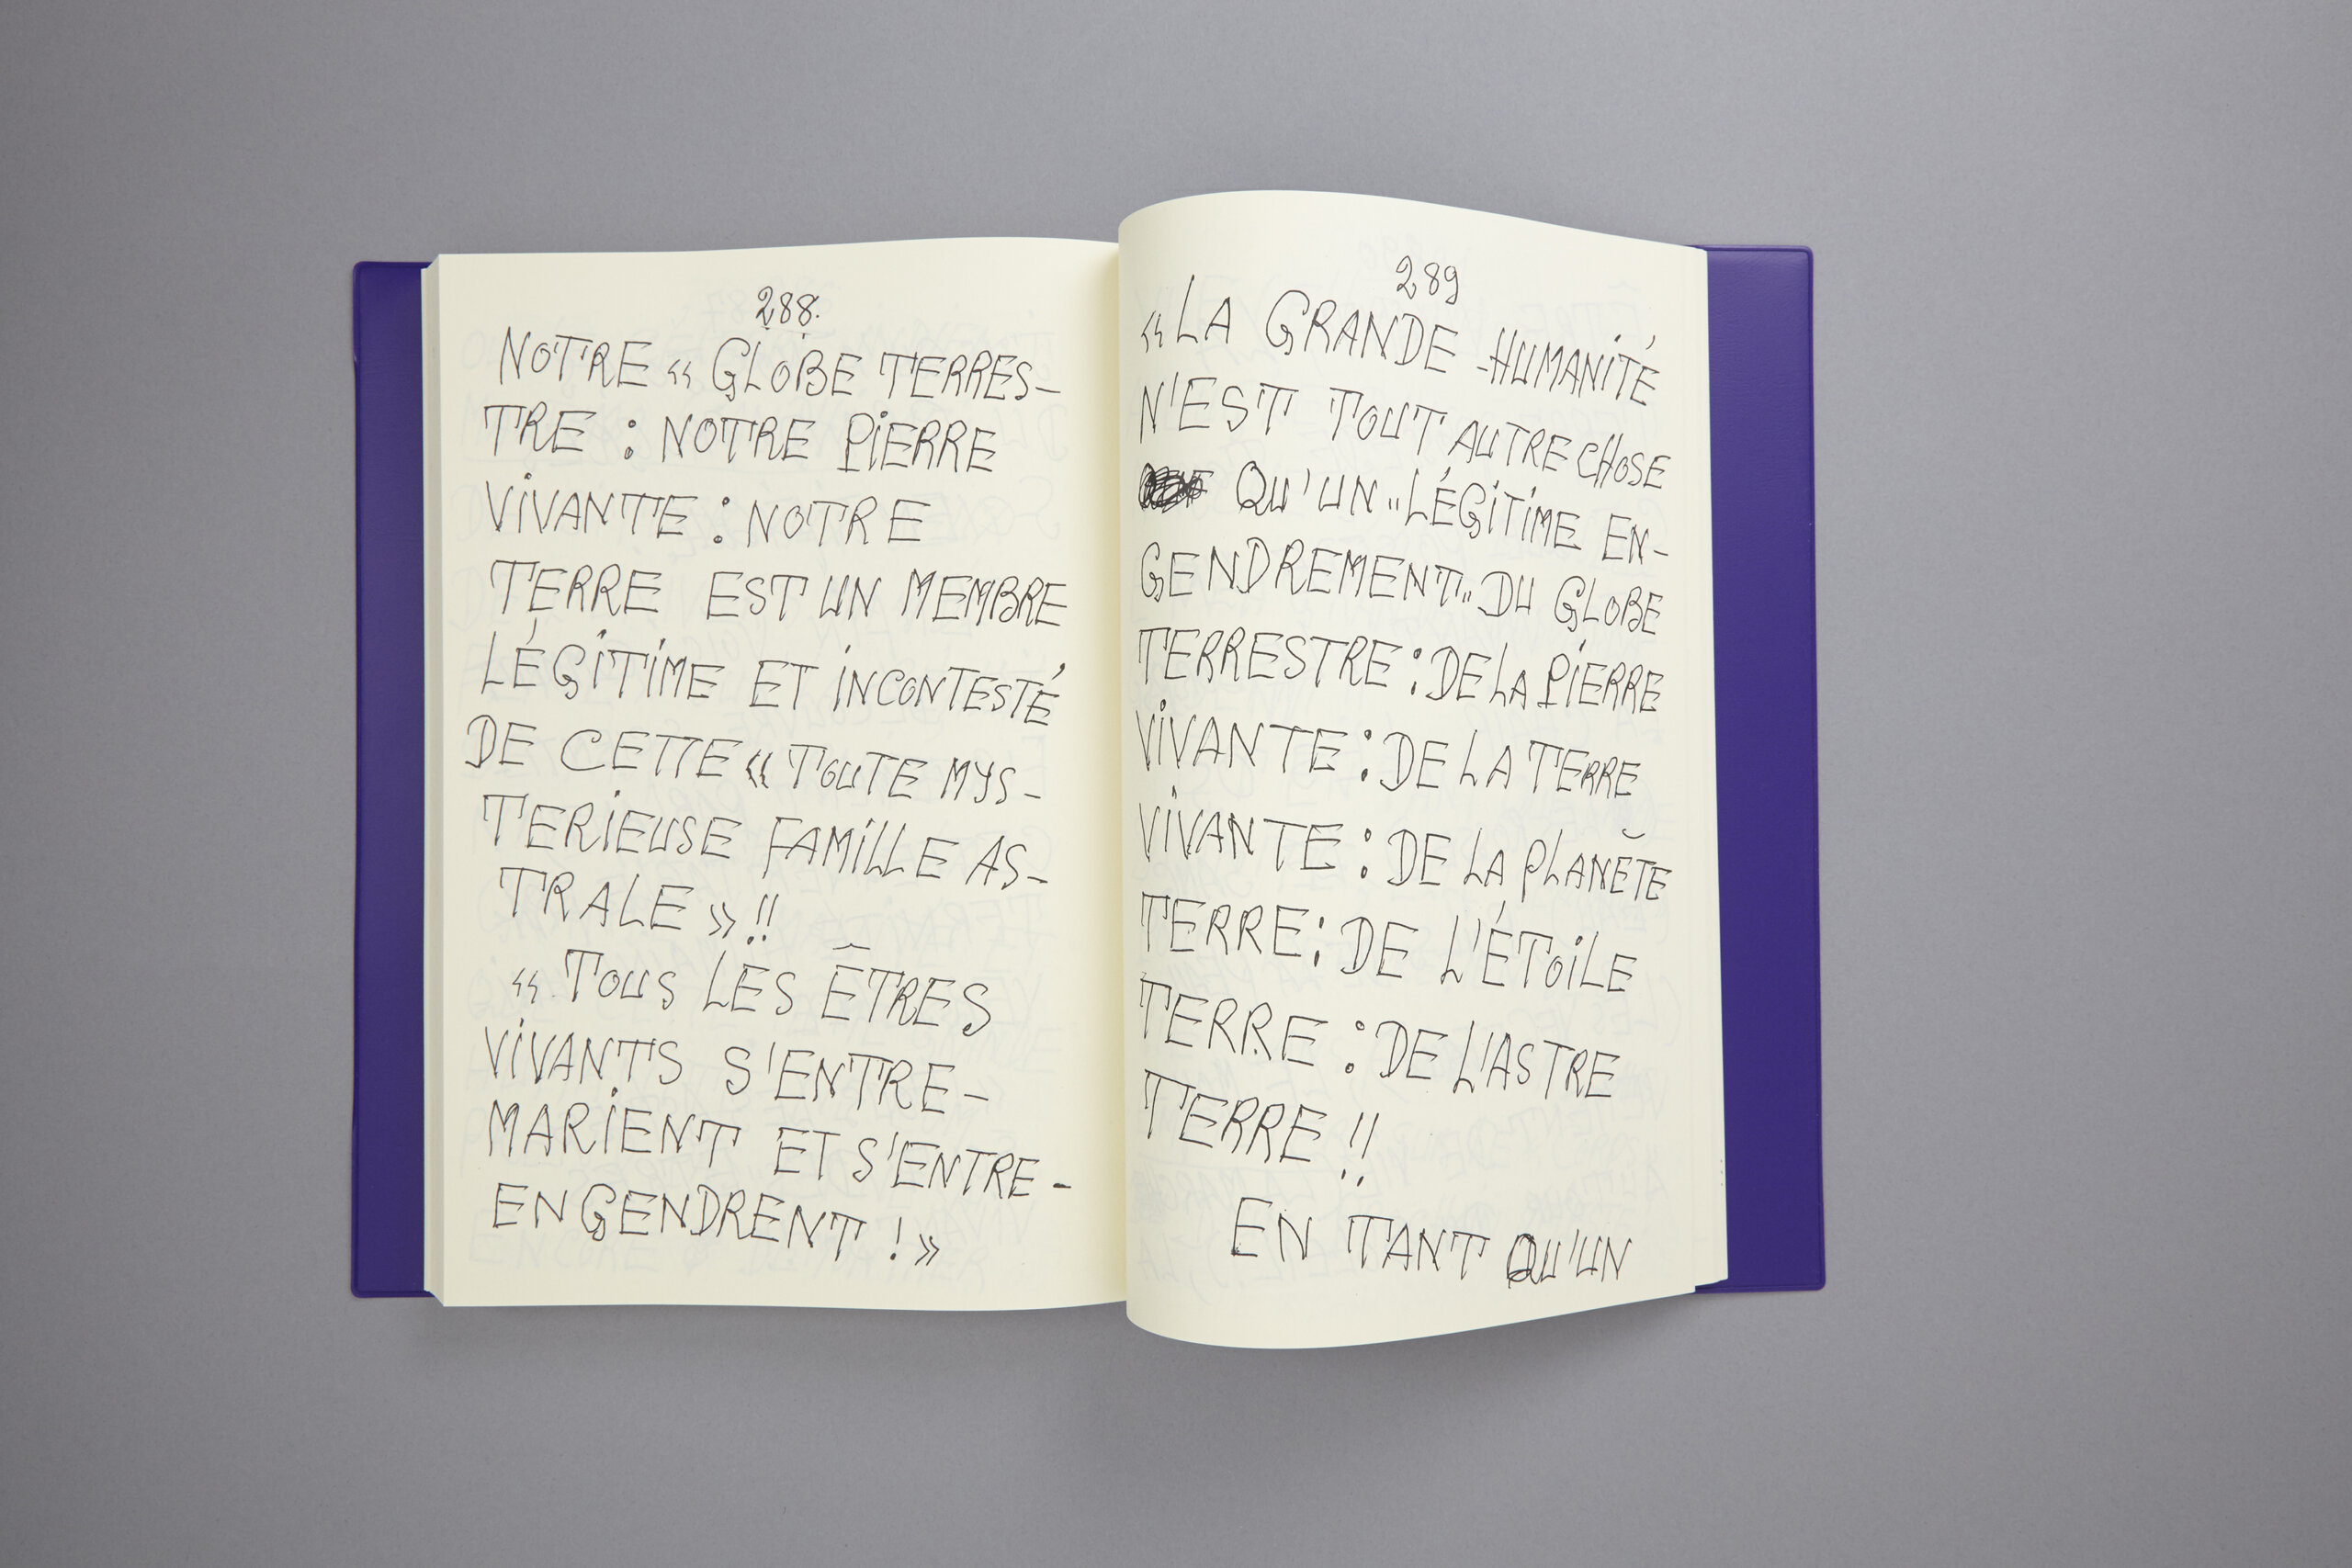 288.
NOTRE « GLOBE TERRES-
TRE : NOTRE PIERRE
VIVANTE : NOTRE
TERRE EST UN MEMBRE
LÉGITIME ET INCONTESTÉ
DE CETTE « TOUTE MYS-
TERIEUSE FAMILLE AS-
TRALE » !!
« TOUS LES ÊTRES
VIVANTS S'ENTRE-
MARIENT ET S'ENTRE-
ENGENDRENT ! »
289
« LA GRANDE HUMANITÉ
N'EST TOUT AUTRE CHOSE
QU'UN "LÉGITIME EN-
GENDREMENT" DU GLOBE
TERRESTRE : DE LA PIERRE
VIVANTE : DE LA TERRE
VIVANTE : DE LA PLANĔTE
TERRE : DE L'ÉTOILE
TERRE : DE L'ASTRE
TERRE !!
EN TANT QU'UN